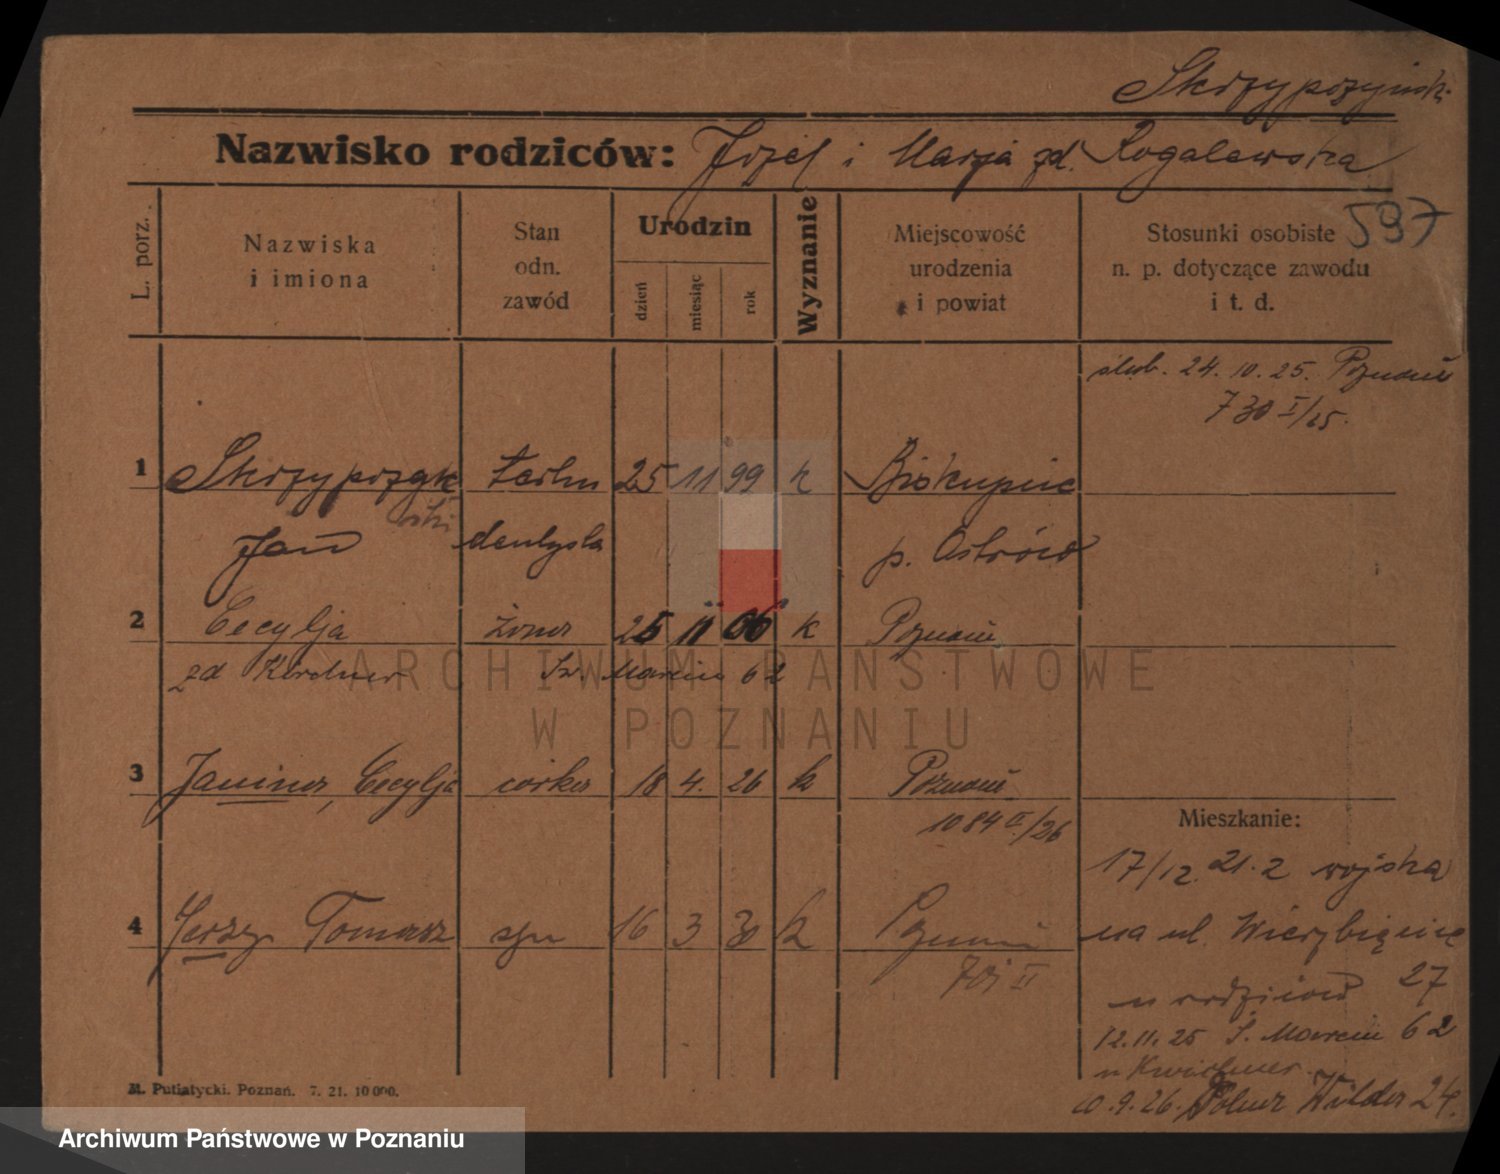 Skrzypczyńsk.
Nazwisko rodziców: Józef i Marja zd. Rogalewska
597
L. porz.
Nazwiska i imiona
Stan odn. zawód
Urodzin
dzień
miesiąc
rok
Wyznanie
Miejscowość urodzenia i powiat
Stosunki osobiste n. p. dotyczące zawodu i t. d.
ślub. 24. 10. 25. Poznań
730 I/25.
1 Skrzypczyk techn 25 11 99 k Biskupice
ski
Jan dentysta p. Ostrów
2 Cecylja żona 25 11 06 k Poznań
zd Św. Marcin 62
3 Janina, Cecylja córka 18 4. 26 k Poznań
1084 II/26
Mieszkanie:
17/12. 21. z wojska
4 Jerzy Tomasz syn 16 3 30 k Poznań
na ul. Wierzbięcie
II
27
u rodziców
12.11.25 Ś. Marcin 62
u
9.26. Dolna Wilda 24.
M. Putiatycki. Poznań. 7. 21. 10 000.
ARCHIWUM PAŃSTWOWE
W POZNANIU
Archiwum Państwowe w Poznaniu